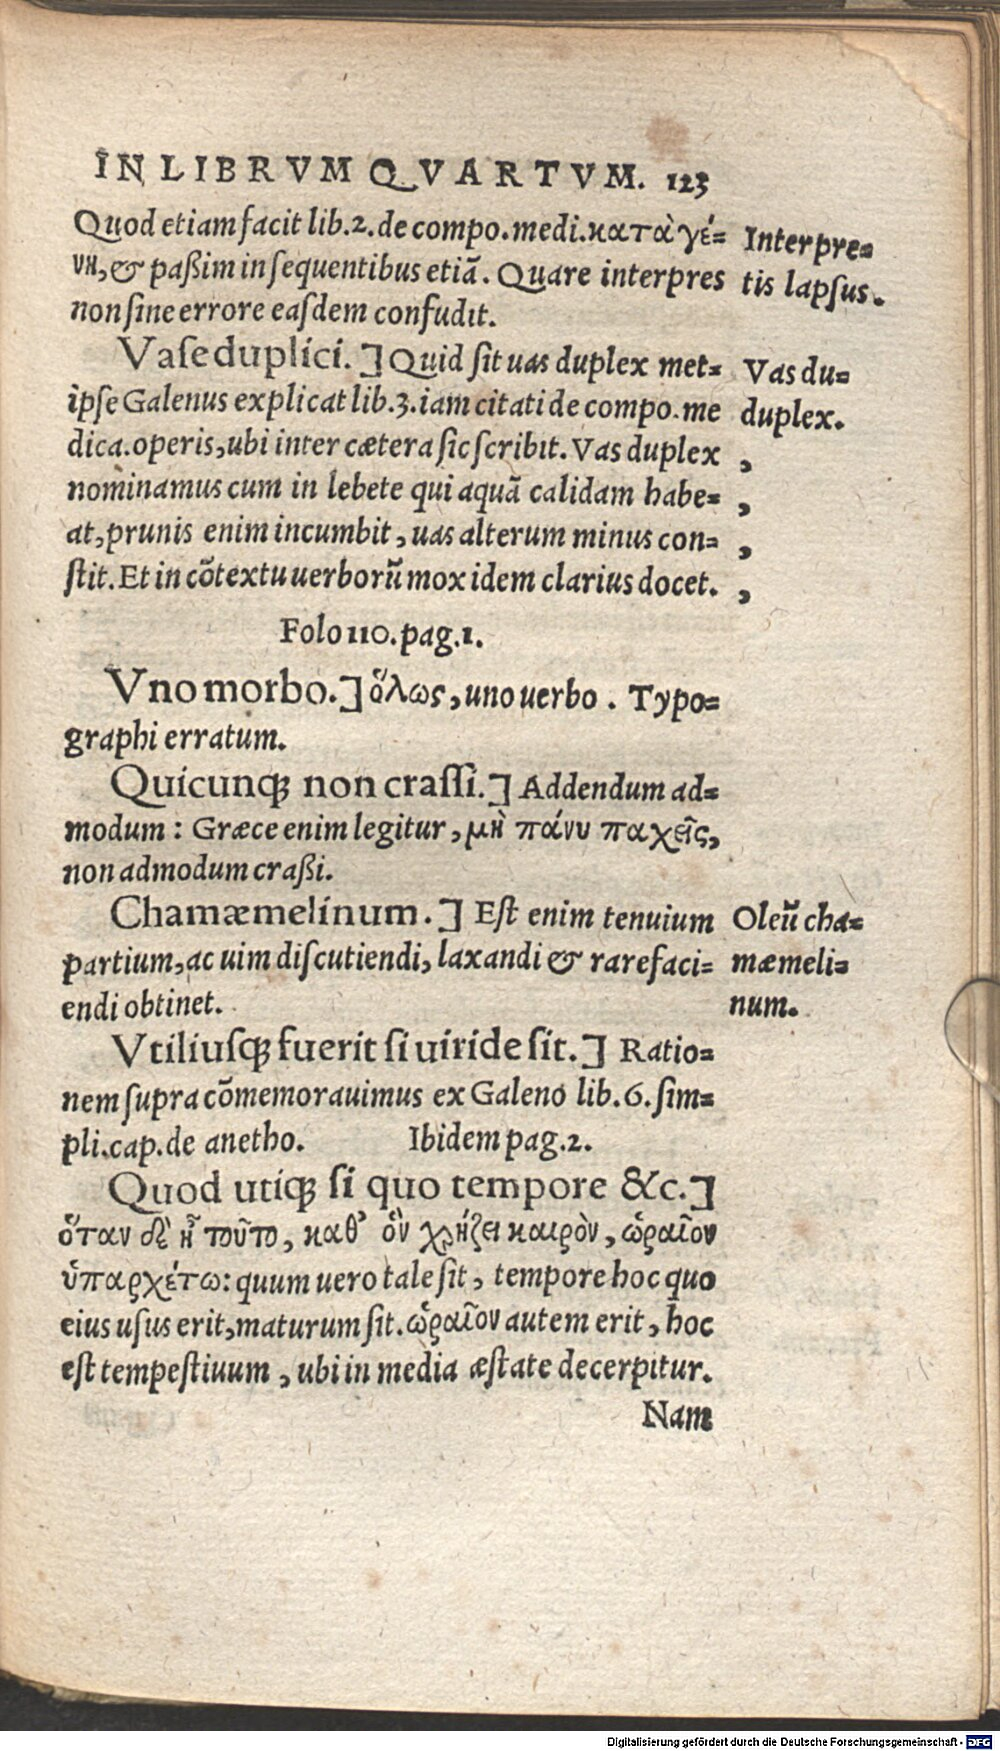 IN LIBRVM QVARTVM. 123
Quod etiam facit lib.2. de compo. medi. κατὰ γέ=
νη, & paßim in sequentibus etiā. Quare interpres
non sine errore easdem confudit.
Interpre=
tis lapsus.
Vase duplici.] Quid sit uas duplex met=
ipse Galenus explicat lib.3. iam citati de compo. me
dica. operis, ubi inter cætera sic scribit. Vas duplex
nominamus cum in lebete qui aquā calidam habe=
at, prunis enim incumbit, uas alterum minus con=
stit. Et in cōtextu uerborū mox idem clarius docet.
Vas du=
duplex.
,
,
,
,
Folo 110. pag.1.
Vno morbo.] ὅλως, uno uerbo. Typo=
graphi erratum.
Quicunq; non crassi.] Addendum ad=
modum: Græce enim legitur, μὴ πάνυ παχεῖς,
non admodum craßi.
Chamæmelinum.] Est enim tenuium
partium, ac uim discutiendi, laxandi & rarefaci=
endi obtinet.
Oleū cha=
mæmeli=
num.
Vtiliusq; fuerit si uiride sit.] Ratio=
nem supra cōmemorauimus ex Galeno lib.6. sim=
pli. cap. de anetho. Ibidem pag.2.
Quod utiq; si quo tempore &c.]
ὅταν δὲ ᾖ τοῦτο, καθ' ὃν χρῄζει καιρὸν, ὡραῖον
ὑπαρχέτω: quum uero tale sit, tempore hoc quo
eius usus erit, maturum sit. ὡραῖον autem erit, hoc
est tempestiuum, ubi in media æstate decerpitur.
Nam
Digitalisierung gefördert durch die Deutsche Forschungsgemeinschaft - DFG